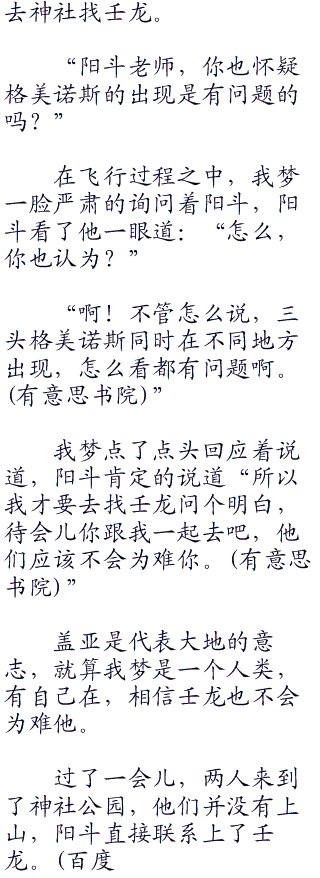 去神社找壬龙。
“阳斗老师，你也怀疑
格美诺斯的出现是有问题的
吗？”
在飞行过程之中，我梦
一脸严肃的询问着阳斗，阳
斗看了他一眼道：“怎么，
你也认为？”
“啊！不管怎么说，三
头格美诺斯同时在不同地方
出现，怎么看都有问题啊。
(有意思书院)”
我梦点了点头回应着说
道，阳斗肯定的说道“所以
我才要去找壬龙问个明白，
待会儿你跟我一起去吧，他
们应该不会为难你。(有意思
书院)”
盖亚是代表大地的意
志，就算我梦是一个人类，
有自己在，相信壬龙也不会
为难他。
过了一会儿，两人来到
了神社公园，他们并没有上
山，阳斗直接联系上了壬
龙。(百度